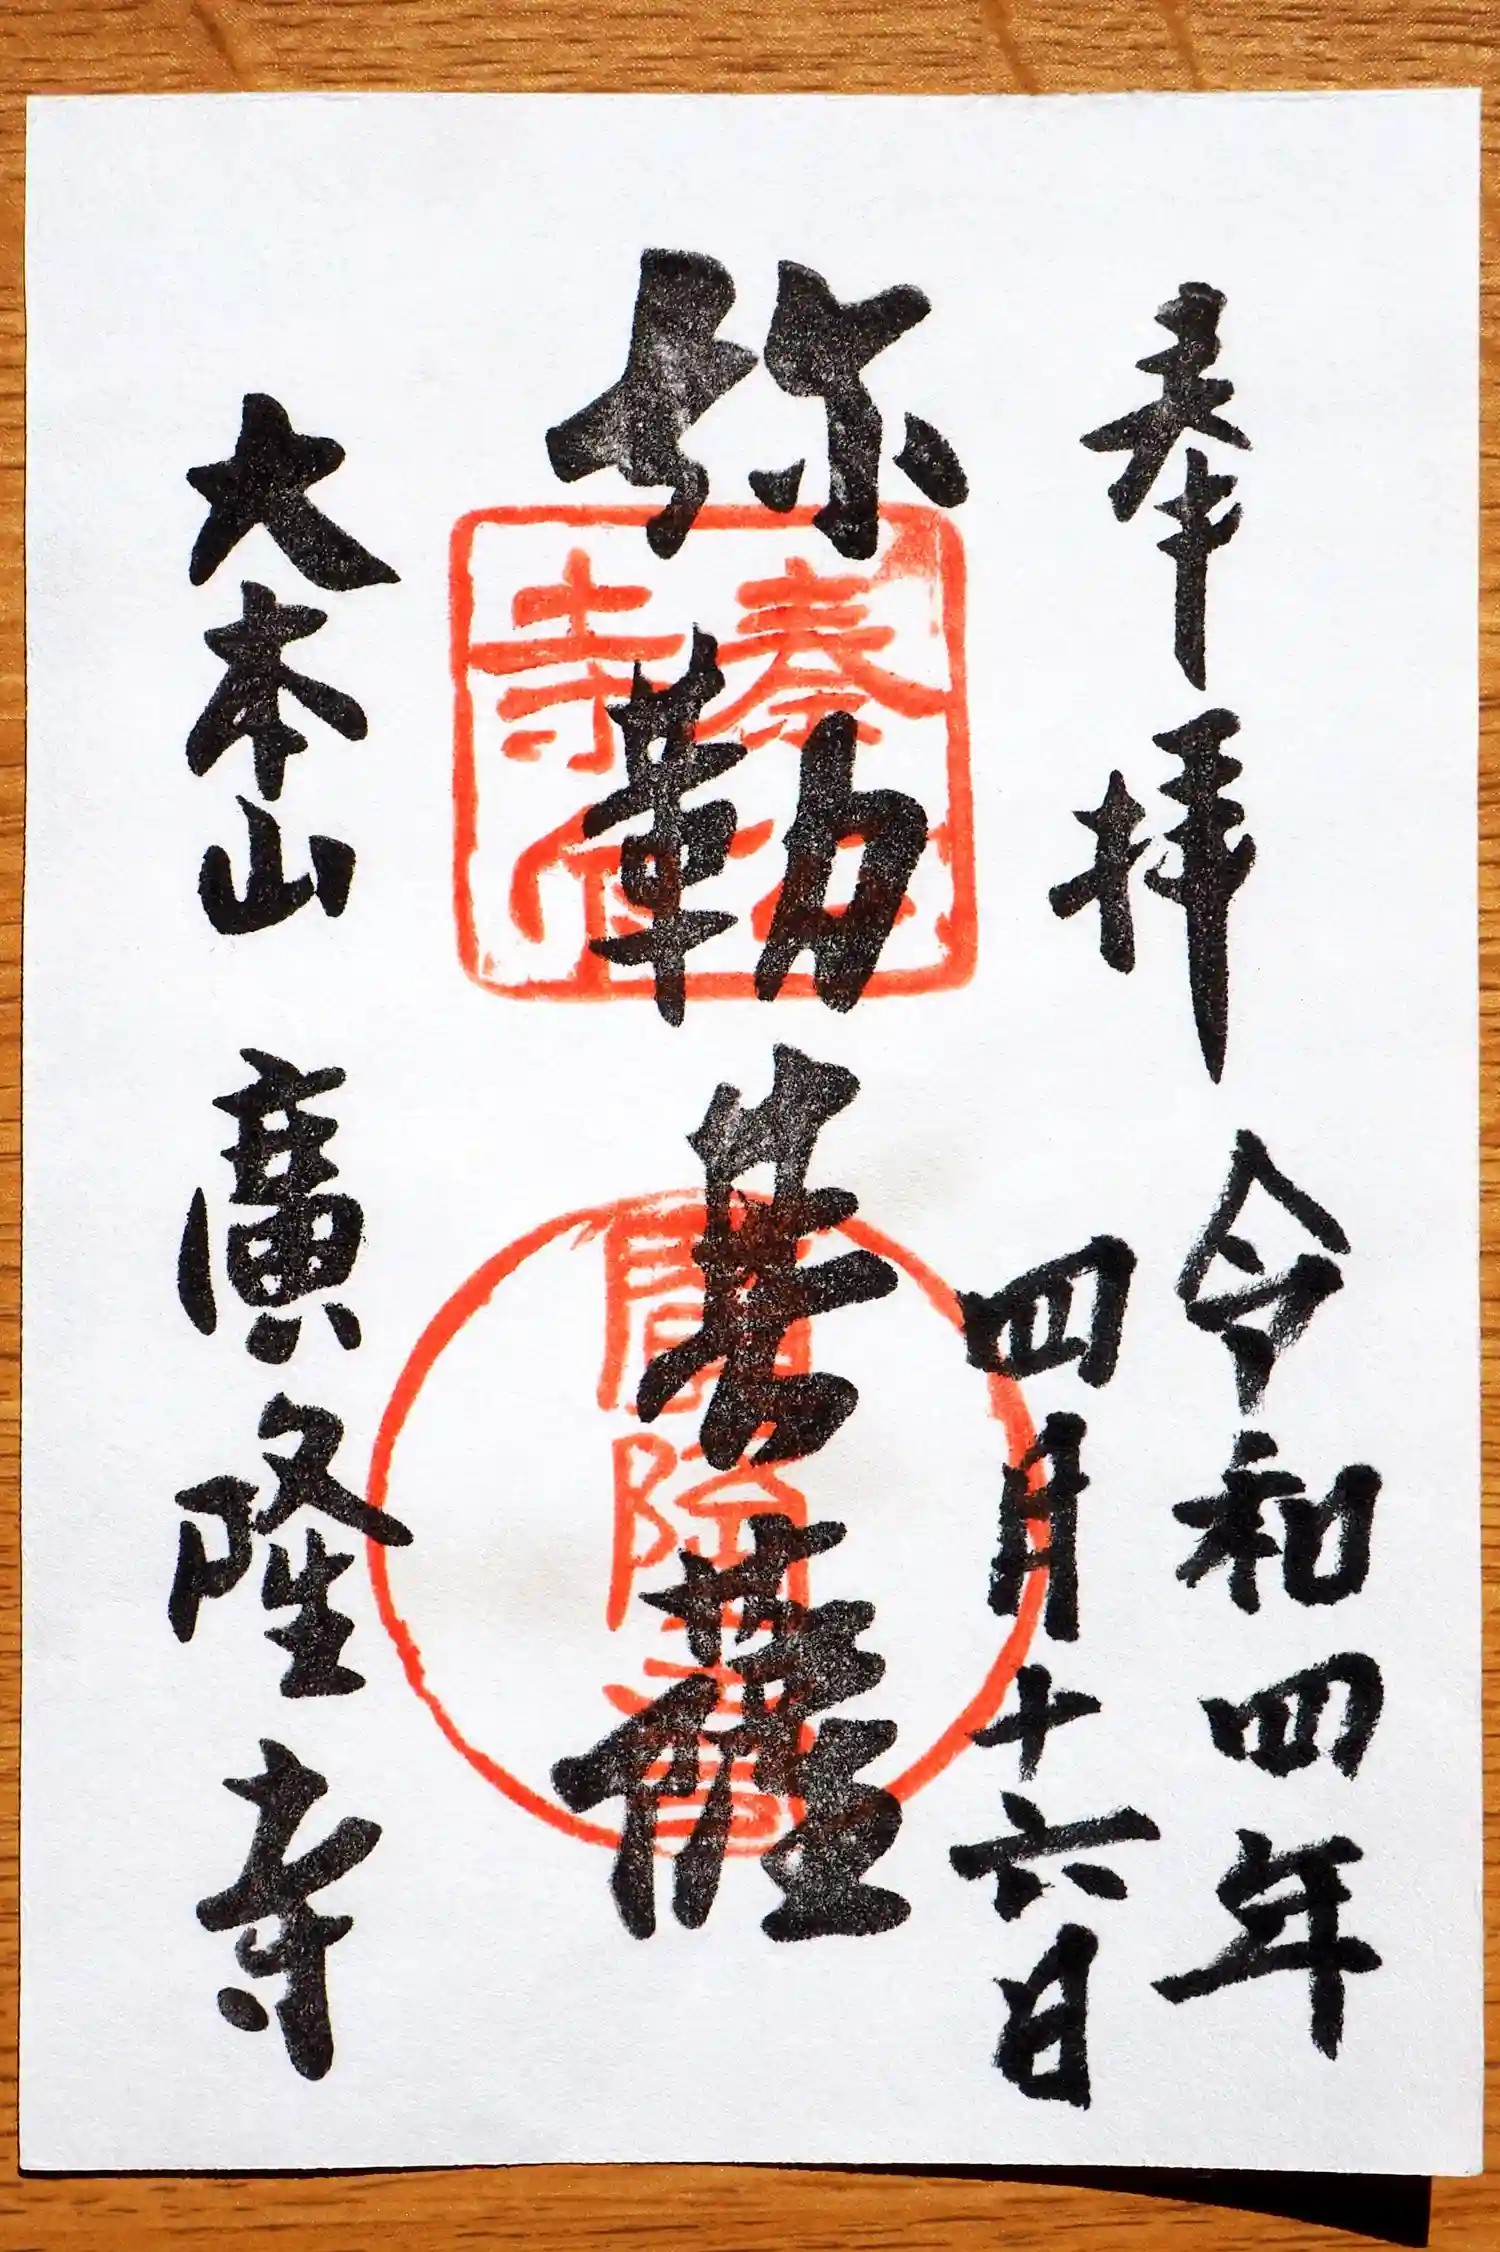 奉拝
令和四年
四月十六日
弥勒菩薩
大本山 廣隆寺